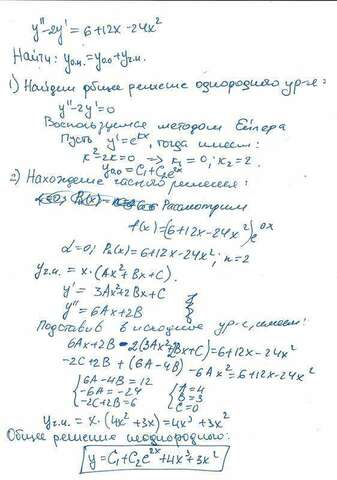 y''-2y' = 6+12x-24x²
Найти: yо.н. = yоо + yч.н.
1) Найдем общее решение однородного ур-е:
y''-2y'=0
Воспользуемся методом Ейлера
Пусть y' = e^kx, тогда имеем:
k²-2k=0 → k₁=0; k₂=2.
yоо = C₁+C₂e^2x
2) Нахождение частного решения:
Рассмотрим
f(x)=(6+12x-24x²)e^0x
α=0; Pn(x)=6+12x-24x²; n=2
yч.н. = x·(Ax²+Bx+C).
y' = 3Ax²+2Bx+C
y'' = 6Ax+2B
Подставив в исходное ур-е, имеем:
6Ax+2B-2(3Ax²+2Bx+C)=6+12x-24x²
-2C+2B+(6A-4B) -6Ax²=6+12x-24x²
{6A-4B=12 {A=4
-6A=-24 B=3
-2C+2B=6 C=0
yч.н. = x·(4x²+3x)=4x³+3x²
Общее решение неоднородного:
y=C₁+C₂e^2x+4x³+3x²